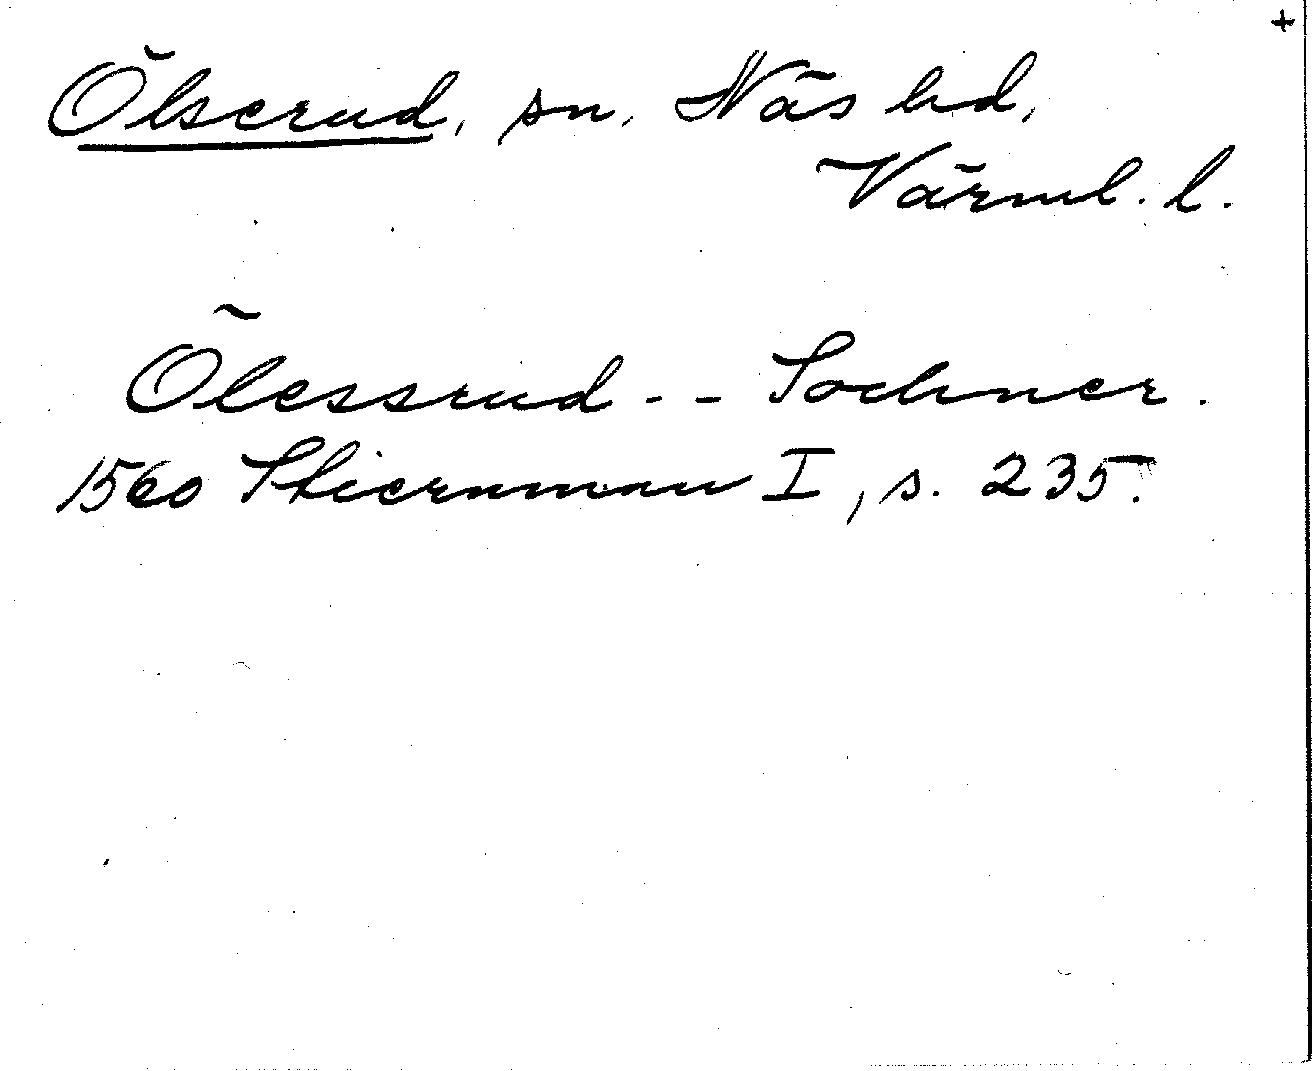 +
Ölserud, sn, Näs hd,
Värml. l.
Ölessrud - - Sochner.
1560 Stiernman I, s. 235.